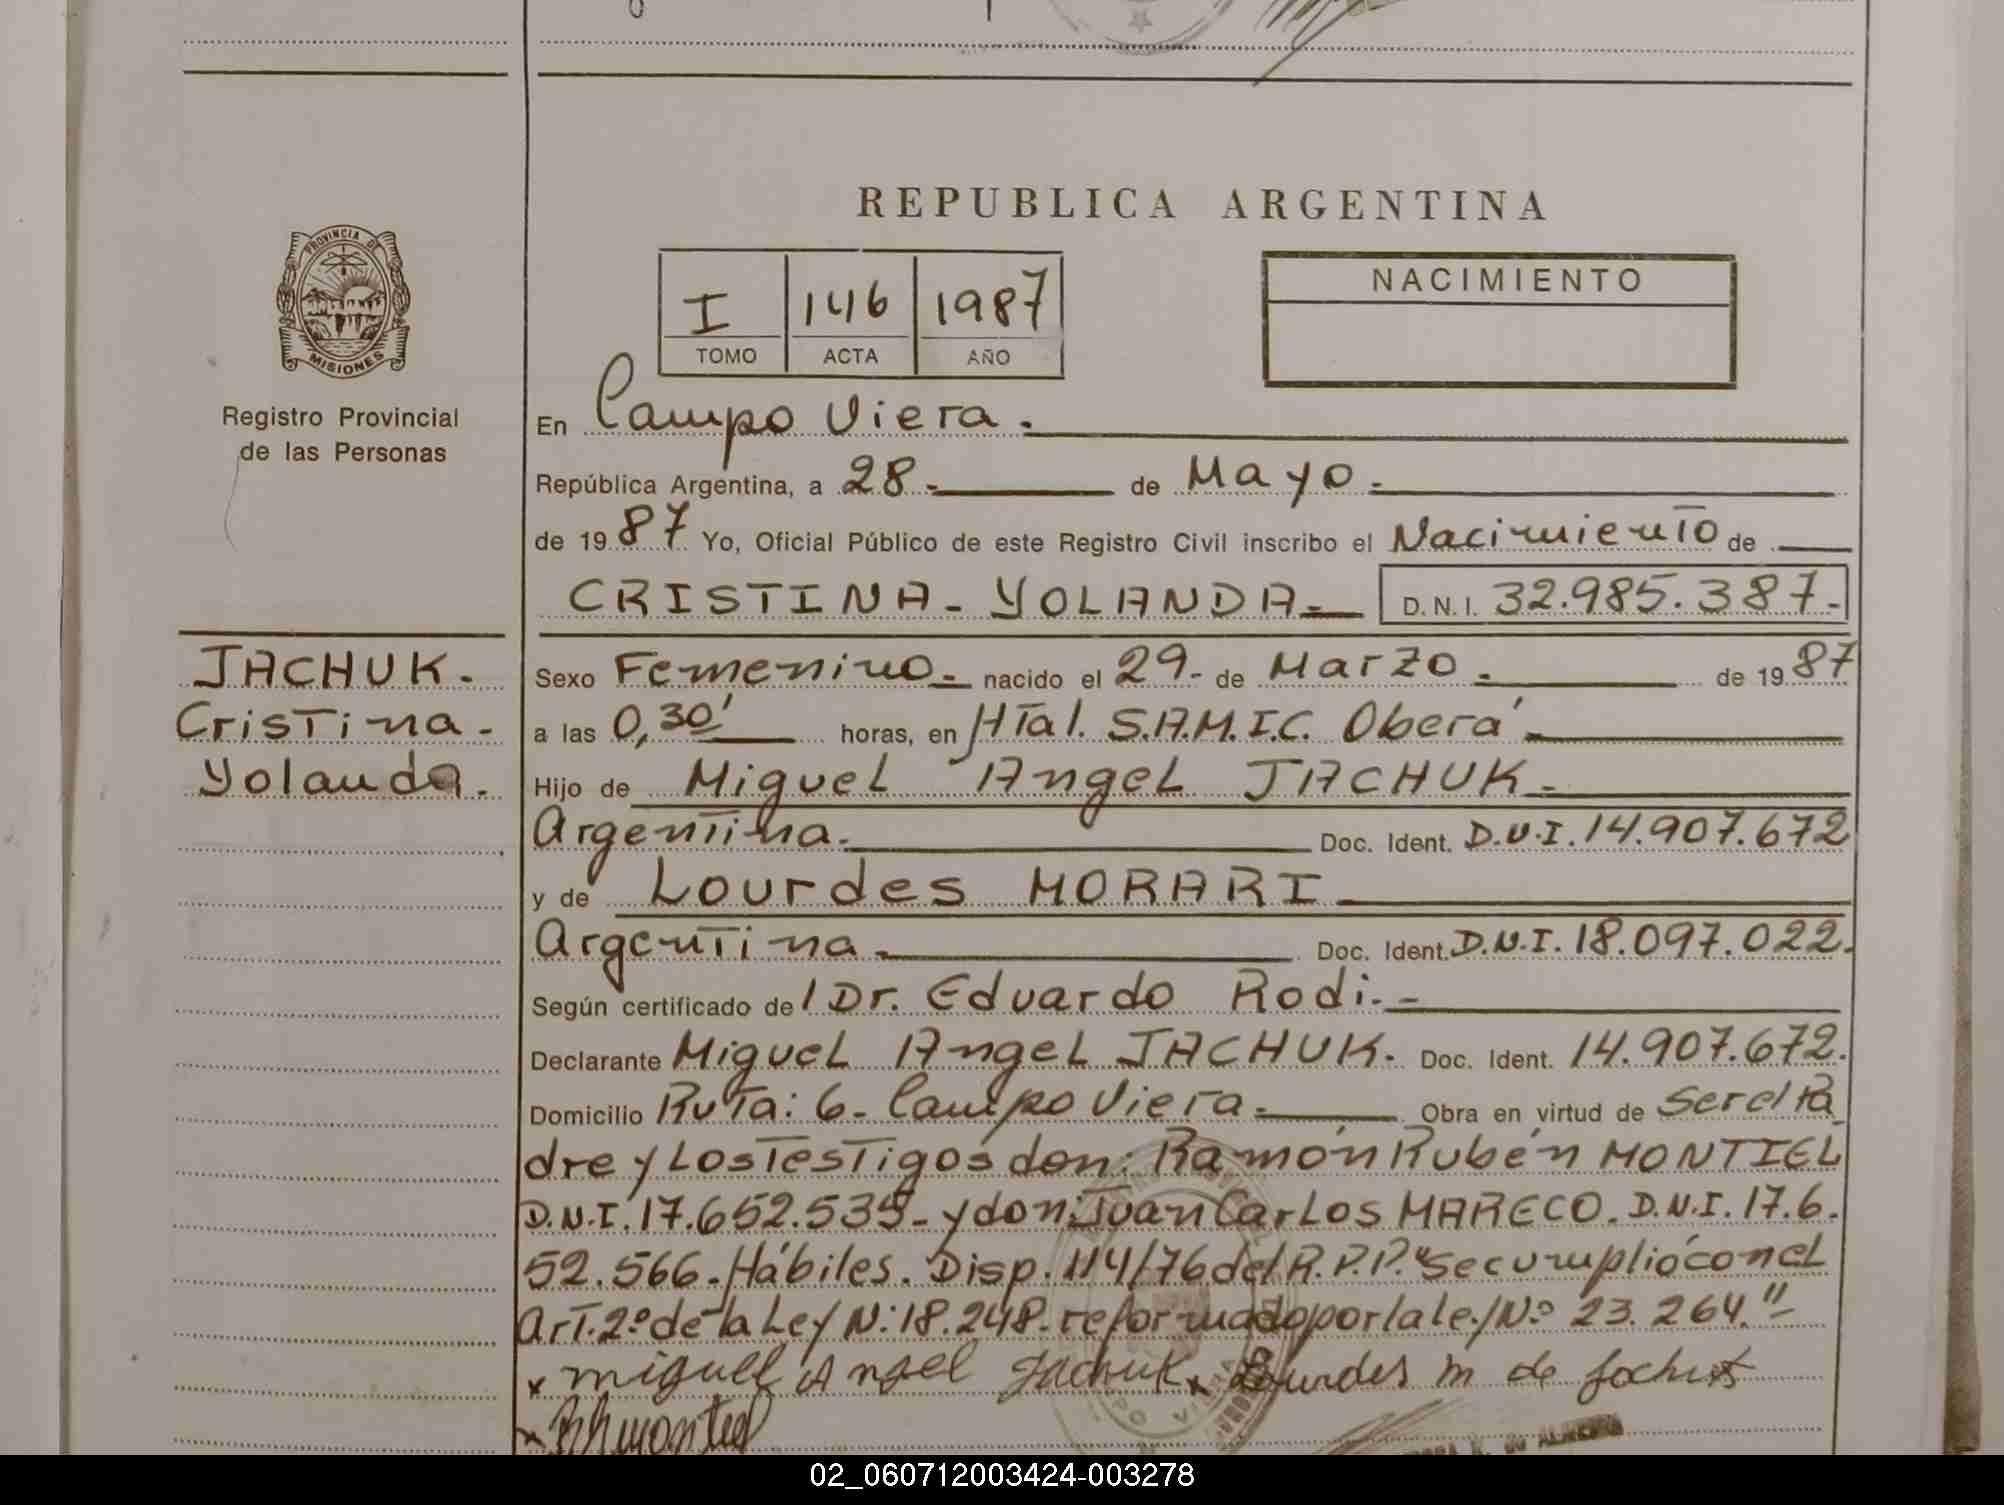 REPUBLICA ARGENTINA
PROVINCIA DE
MISIONES
Registro Provincial
de las Personas
I 146 1987
TOMO ACTA AÑO
NACIMIENTO
En Campo Viera.
República Argentina, a 28.- de Mayo.-
de 19 87 Yo, Oficial Público de este Registro Civil inscribo el Nacimiento de
CRISTINA - YOLANDA.- D.N.I. 32.985.387.-
JACHUK.
Cristina-
Yolanda.
Sexo Femenino.- nacido el 29.- de Marzo.- de 19 87
a las 0,30' horas, en Htal. S.A.M.I.C. Oberá.-
Hijo de Miguel Angel JACHUK.-
Argentina.- Doc. Ident. D.N.I. 14.907.672
y de Lourdes MORARI
Argentina.- Doc. Ident. D.N.I. 18.097.022.
Según certificado de / Dr. Eduardo Rodi.-
Declarante Miguel Angel JACHUK. Doc. Ident. 14.907.672.
Domicilio Ruta: 6- Campo Viera.- Obra en virtud de ser el Pa
dre y Los Testigos don: Ramón Rubén MONTIEL
D.N.I. 17.652.535- y don: Juan Carlos MARECO. D.N.I. 17.6.
52.566.-Hábiles. Disp. 114/76 del R.P.P. "Se cumplió con el
Art. 2º de la Ley N: 18.248. reformado por la ley Nº 23.264."-
x Miguel Angel Jachuk x Lourdes M de Jachuk
x
02_060712003424-003278